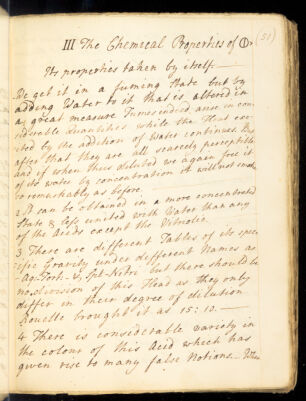 III The Chemical Properties of
(51)
Its properties taken by itself —
We get it in a fuming State but by
adding Water to it that is altered in
a great measure Fumes indeed arise in con
siderable Quantities while the Heat exc-
ited by the addition of Water continues. But
after that they are all scarcely perceptible
and if when thus diluted we again free it
of its water by concentration it will not smoke
so remarkably as before.
2 It can be obtained in a more concentrated
State & less united with Water than any
of the Acids except the Vitriolic.
3. There are different Tables of its spec
ific Gravity under different Names as
Aq: Fort. Spt. Nitri but there should be
no division of this Head as they only
differ in their degree of dilution
Rouelle brought it as 15: 10. —
4 There is considerable variety in
the colour of this Acid which has
given rise to many false Notions. — When